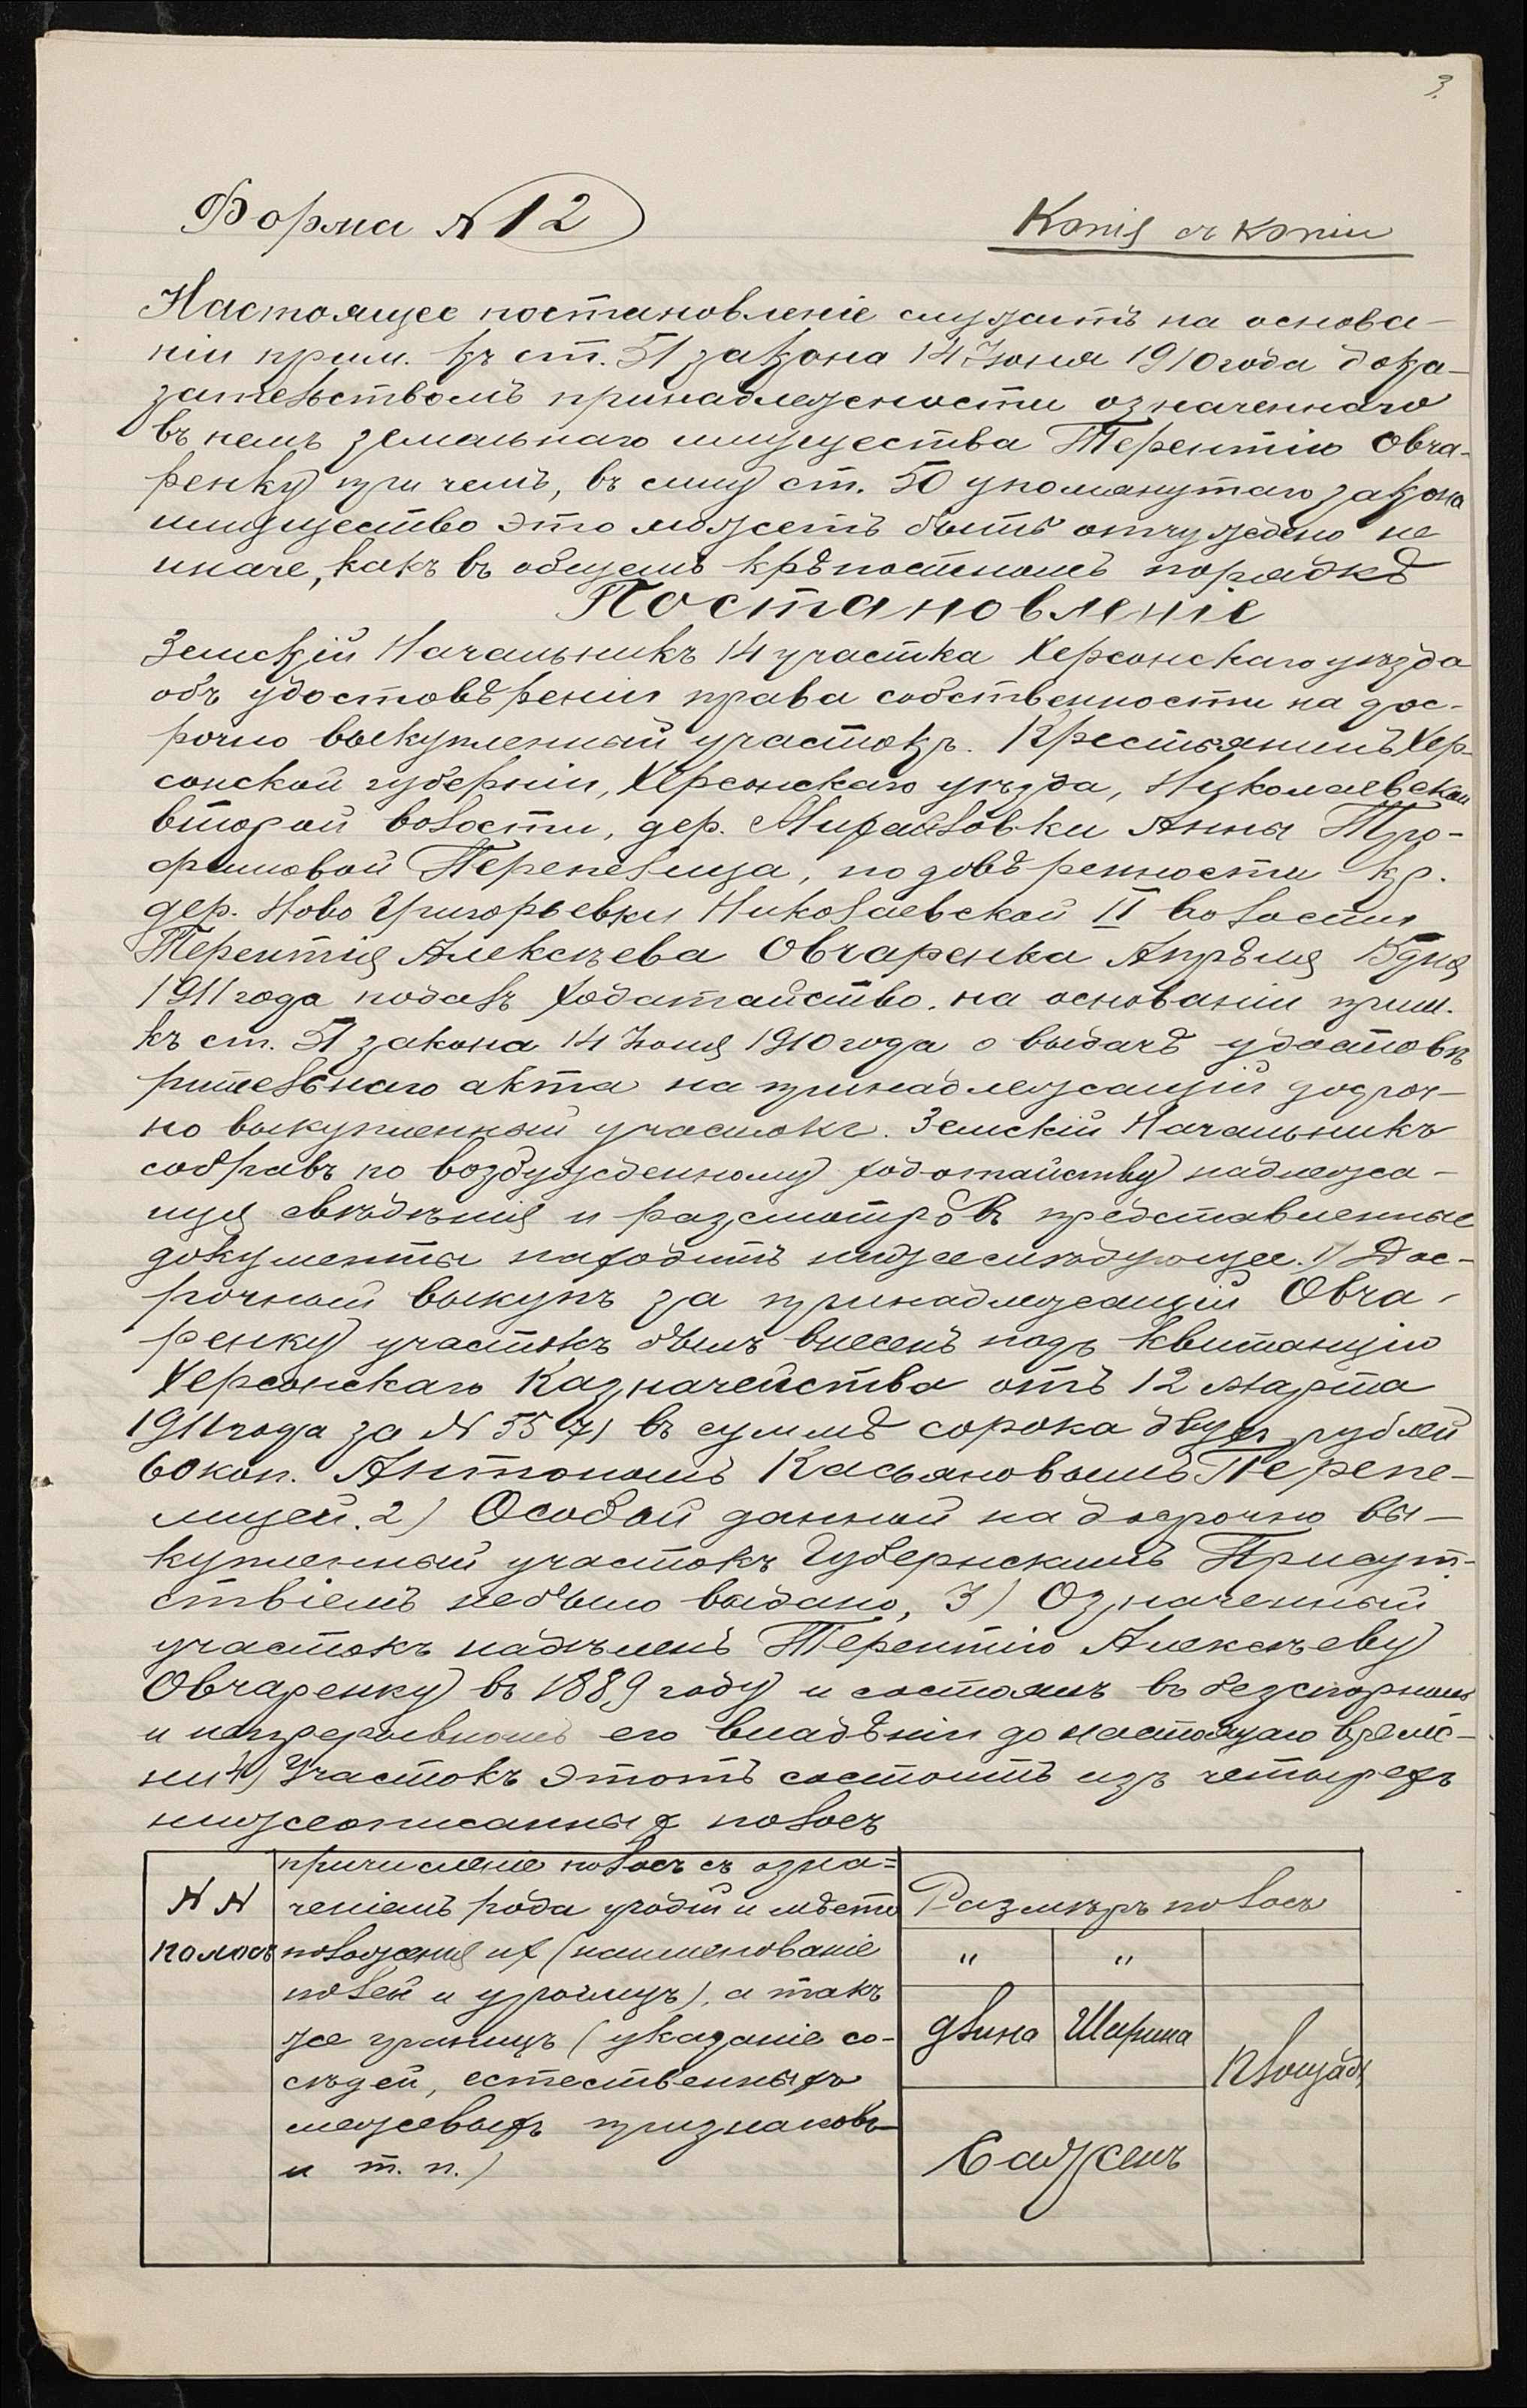 3.
Форма № 12
Копія съ копіи
Настоящее постановленіе служитъ на основа-
ніи прим. къ ст. 51 закона 14 Іюня 1910 года дока-
зательствомъ принадлежности означеннаго
въ немъ земельнаго имущества Терентію Овча-
ренку при чемъ, въ силу ст. 50 упомянутаго закона
имущество это можетъ быть отчуждено не
иначе, какъ въ общемъ крѣпостномъ порядкѣ
Постановленіе
Земскій Начальникъ 14 участка Херсонскаго уѣзда
объ удостовѣреніи права собственности на дос-
рочно выкупленный участокъ. Крестьянинъ Хер-
сонской губерніи, Херсонскаго уѣзда, Николаевской
второй волости, дер. Михайловки Анны Тро-
фимовой Перепелица, по довѣренности кр.
дер. Ново Григорьевки Николаевской II волости
Терентія Алексѣева Овчаренка Апрѣля 15 дня
1911 года подалъ ходатайство. на основаніи прим.
къ ст. 51 закона 14 Іюня 1910 года о выдачѣ удостовѣ
рительнаго акта на принадлежащій досроч-
но выкупленный участокъ. Земскій Начальникъ
собравъ по возбужденному ходотайству надлежа-
щія свѣдѣнія и разсмотрѣвъ представленные
документы находитъ нижеслѣдующее. 1) Дос-
рочный выкупъ за принадлежащій Овча-
ренку участокъ былъ внесенъ подъ квитанцію
Херсонскаго Казначейства отъ 12 марта
1911 года за № 5571 въ суммѣ сорока двухъ рублей
60 коп. Антономъ Касьяновымъ Перепе-
лицей. 2) Особой данной на досрочно вы-
купленный участокъ Губернскимъ Присут-
ствіемъ небыло выдано, 3) Означенный
участокъ надѣленъ Терентію Алексѣеву
Овчаренку въ 1889 году и состоялъ въ безспорномъ
и непрерывномъ его владѣніи до настоящаго време-
ни 4) Участокъ этотъ состоитъ изъ четырехъ
нижеописанных полосъ
№ №
полосъ
причисленіе полосъ съ озна=
ченіемъ рода угодій и мѣсто
положенія их (наименованіе
полей и урочищъ), а такъ
же границъ (указаніе со-
сѣдей, естественныхъ
межевыхъ признаковъ
и т. п.)
Размѣръ полосъ
" "
длина Ширина
Площадь
Саженъ